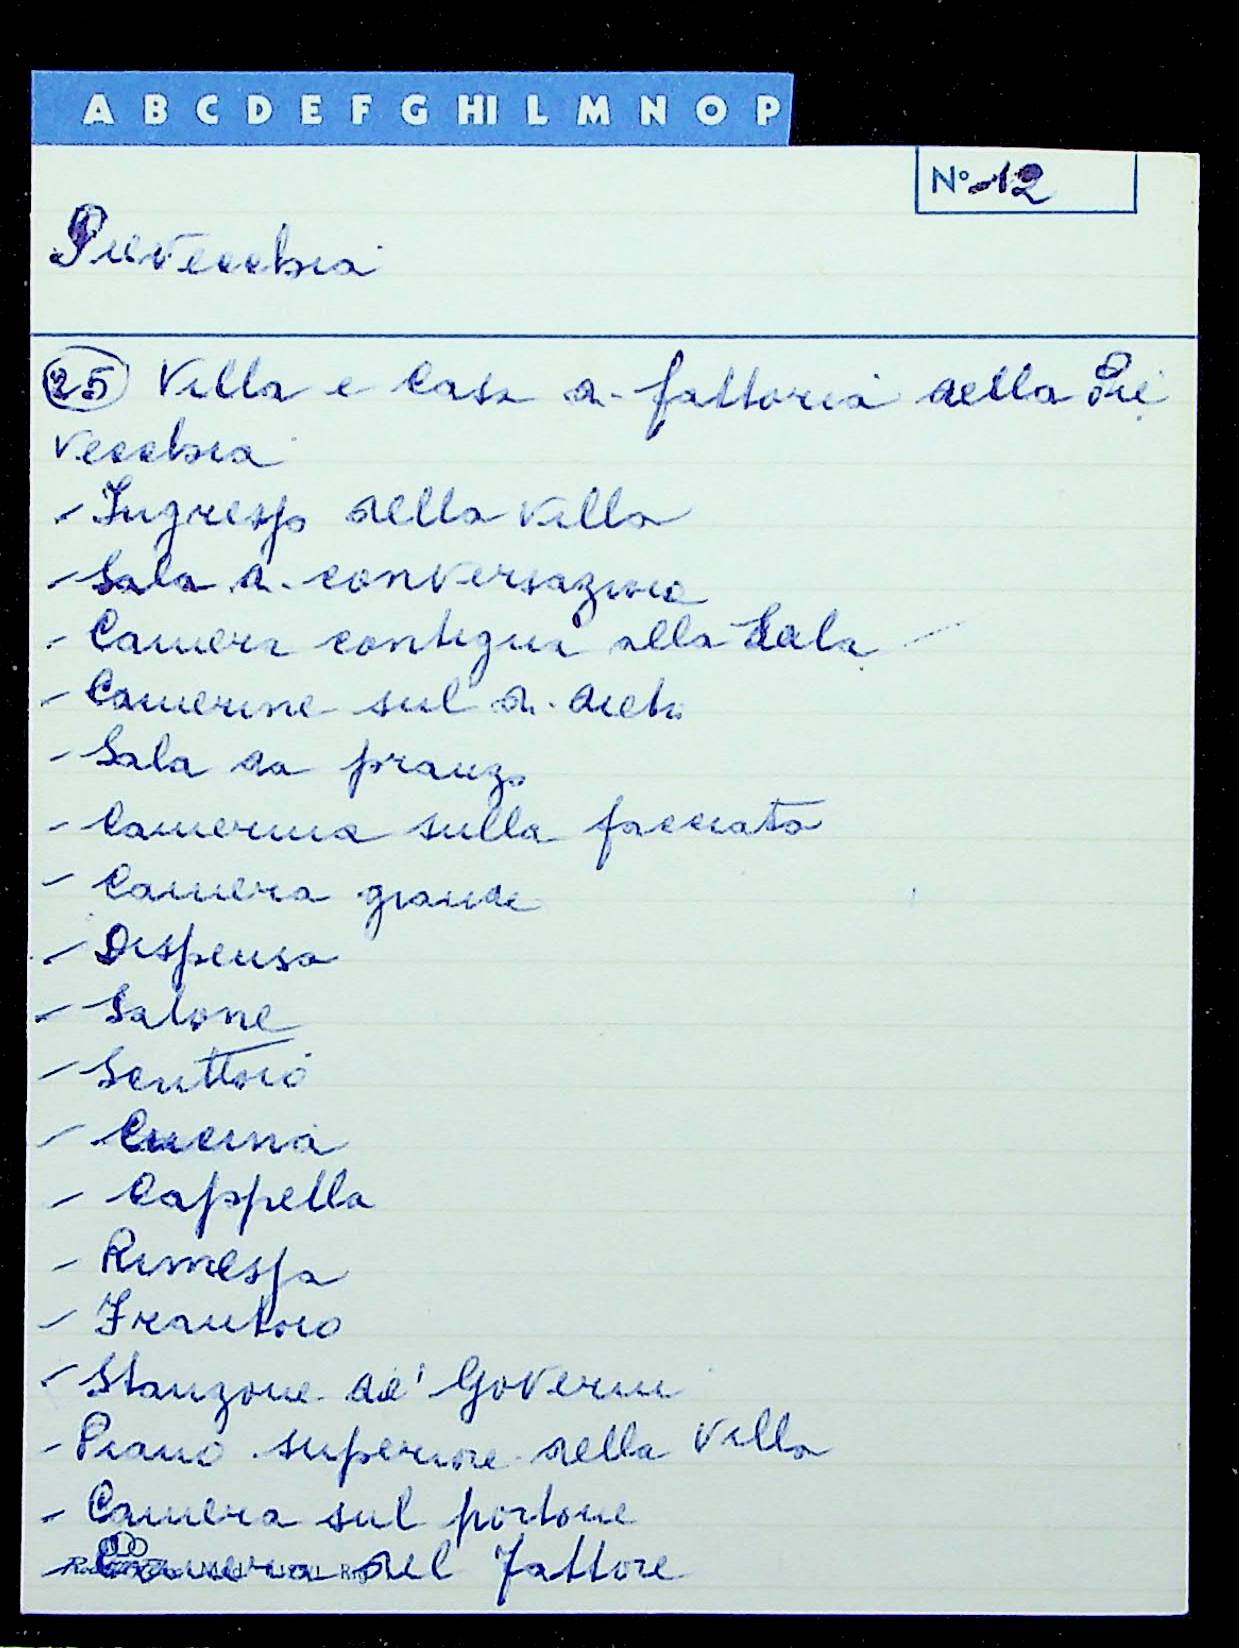 A B C D E F G HI L M N O P
N° 12
Pievecchia
25 Villa e Casa di fattoria della Pie
vecchia
- Ingresso della Villa
- Sala di conversazione
- Camera contigua alla Sala
- Camerine sul di dietro
- Sala da pranzo
- Camerina sulla facciata
- Camera grande
- Dispensa
- Salone
- Scrittoio
- Cucina
- Cappella
- Rimessa
- Frantoio
- Stanzone de' Governi
- Piano superiore della Villa
- Camera sul portone
- Camera del Fattore